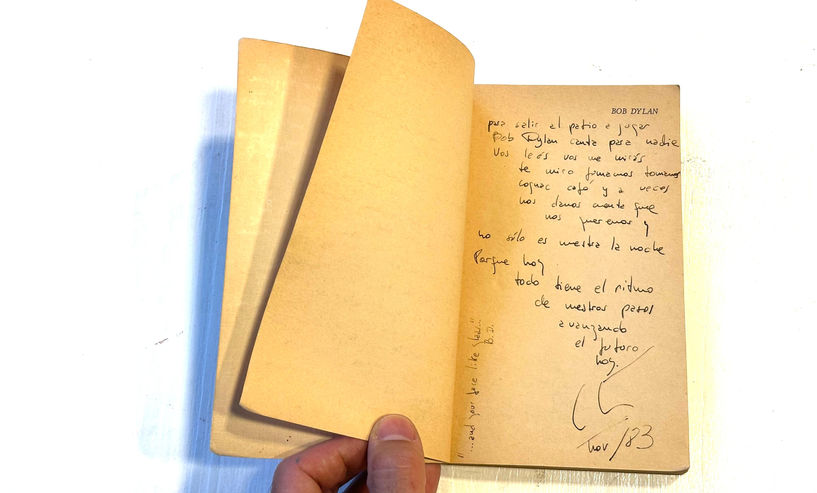 BOB DYLAN
para salir al patio a jugar
Bob Dylan canta para nadie
Vos leés vos me mirás
te miro fumamos tomamos
cognac café y a veces
nos damos cuenta que
nos queremos y
no sólo es nuestra la noche
Porque hoy
todo tiene el ritmo
de nuestros pasos
avanzando
el futuro
hoy.
nov/83
"...and your face like glass..."
B.D.